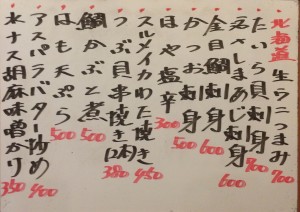 北海道 生うこつまみ 900
たいら貝刺身 700
活〆しまあじ刺身 600
金目鯛刺身 600
かつお刺身 500
ほや塩辛 300
スルメイカわた焼き 450
つぶ貝串焼き 380
鯛かぶと煮 500
はも天ぷら 500
アスパラバター炒め 400
水ナス胡麻味噌かけ 350